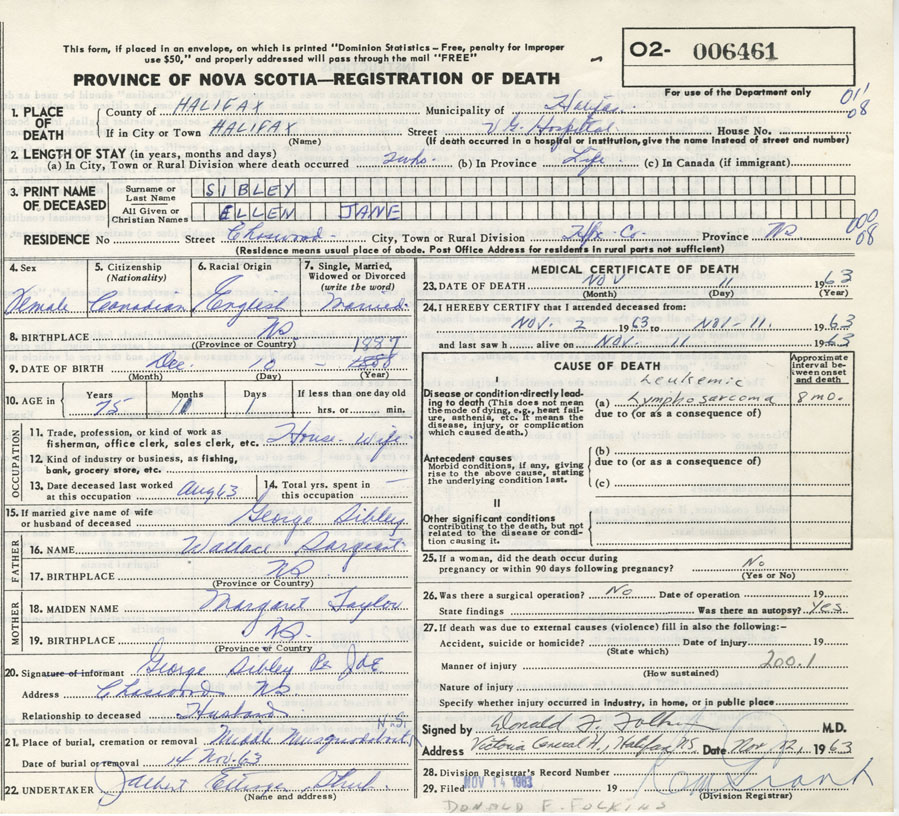 This form, if placed in an envelope, on which is printed "Dominion Statistics – Free, penalty for improper
use $50," and properly addressed will pass through the mail "FREE"
O2- 006461
PROVINCE OF NOVA SCOTIA—REGISTRATION OF DEATH
For use of the Department only
1. PLACE OF DEATH
County of HALIFAX Municipality of Halifax
If in City or Town HALIFAX Street V G Hospital House No.
(Name) (If death occurred in a hospital or institution, give the name instead of street and number)
08
2. LENGTH OF STAY (in years, months and days)
(a) In City, Town or Rural Division where death occurred 2 wks. (b) In Province Life (c) In Canada (if immigrant)
3. PRINT NAME OF DECEASED
Surname or Last Name SIBLEY
All Given or Christian Names ELLEN JANE
RESIDENCE No Street Chaswood City, Town or Rural Division Hfx Co. Province NS
000
08
(Residence means usual place of abode. Post Office Address for residents in rural parts not sufficient)
4. Sex Female
5. Citizenship (Nationality) Canadian
6. Racial Origin English
7. Single, Married, Widowed or Divorced (write the word) Married
8. BIRTHPLACE NS
(Province or Country)
9. DATE OF BIRTH Dec. 10 1887 1888
(Month) (Day) (Year)
10. AGE in Years 75 Months 11 Days 1 If less than one day old hrs. or min.
OCCUPATION
11. Trade, profession, or kind of work as fisherman, office clerk, sales clerk, etc. House-wife
12. Kind of industry or business, as fishing, bank, grocery store, etc.
13. Date deceased last worked at this occupation Aug 63
14. Total yrs. spent in this occupation –
15. If married give name of wife or husband of deceased George Sibley
FATHER
16. NAME Wallace Sargent
17. BIRTHPLACE NS
(Province or Country)
MOTHER
18. MAIDEN NAME Margaret Taylor
19. BIRTHPLACE NS.
(Province or Country)
20. Signature of informant George Sibley Per
Address Chaswood NS
Relationship to deceased Husband
21. Place of burial, cremation or removal Middle Musquodoboit N.S.
Date of burial or removal 14 Nov. 63
22. UNDERTAKER
(Name and address)
MEDICAL CERTIFICATE OF DEATH
23. DATE OF DEATH NOV 11 1963
(Month) (Day) (Year)
24. I HEREBY CERTIFY that I attended deceased from:
NOV. 2 1963 to NOV - 11. 1963
and last saw h alive on NOV. 11 1963
CAUSE OF DEATH
Approximate interval between onset and death
I
Disease or condition directly leading to death (This does not mean the mode of dying, e.g., heart failure, asthenia, etc. It means the disease, injury, or complication which caused death.)
Leukemic
(a) Lymphosarcoma 8 mo.
due to (or as a consequence of)
Antecedent causes
Morbid conditions, if any, giving rise to the above cause, stating the underlying condition last.
(b)
due to (or as a consequence of)
(c)
II
Other significant conditions
contributing to the death, but not related to the disease or condition causing it.
25. If a woman, did the death occur during pregnancy or within 90 days following pregnancy? No
(Yes or No)
26. Was there a surgical operation? No Date of operation 19
State findings Was there an autopsy? Yes
27. If death was due to external causes (violence) fill in also the following:–
Accident, suicide or homicide? Date of injury 19
(State which)
Manner of injury 200.1
(How sustained)
Nature of injury
Specify whether injury occurred in industry, in home, or in public place
Signed by Donald F. Folkins M.D.
Address Victoria General H., Halifax, NS. Date Nov. 12, 1963
28. Division Registrar's Record Number
29. Filed NOV 14 1963 19
(Division Registrar)
DONALD F. FOLKINS